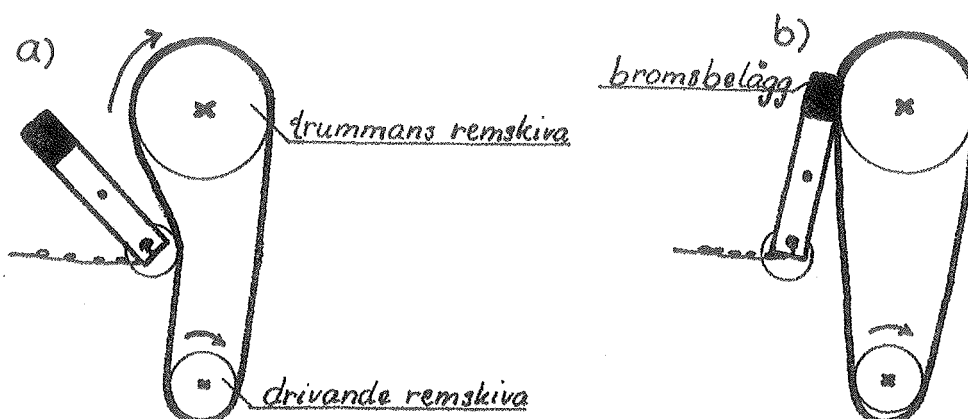 a)
trummans remskiva
drivande remskiva
b)
bromsbelägg